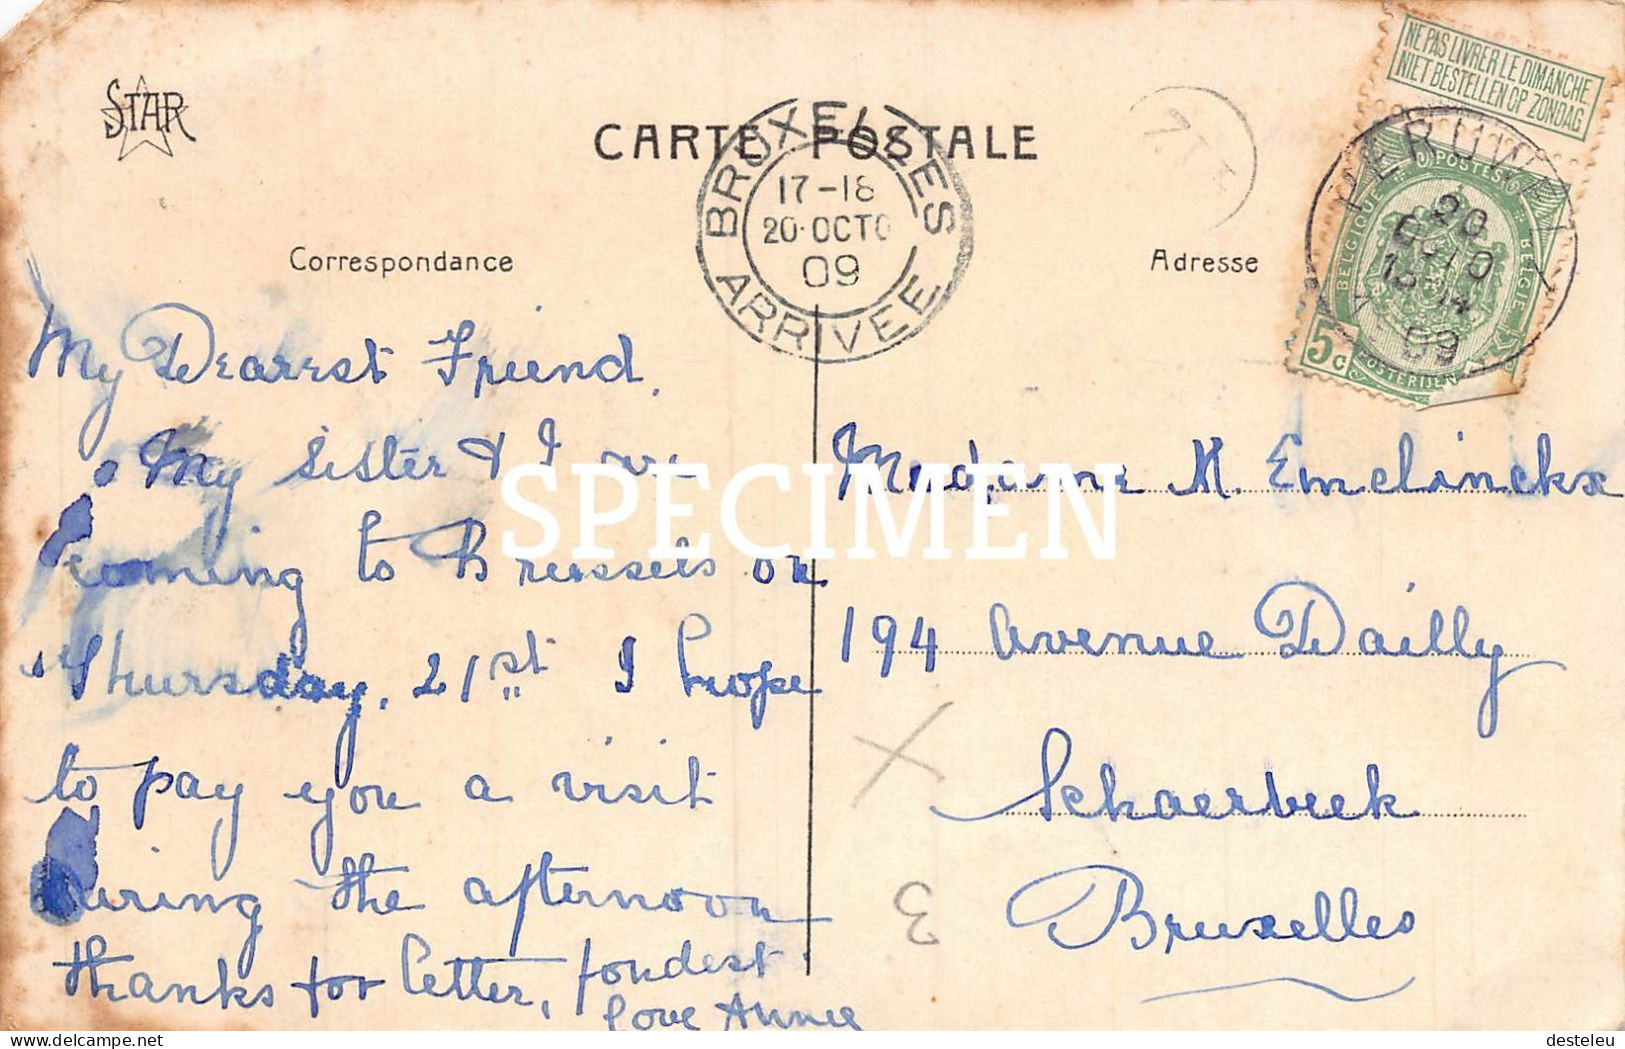 STAR
CARTE POSTALE
NE PAS LIVRER LE DIMANCHE
NIET BESTELLEN OP ZONDAG
BRUXELLES
17-18
20·OCTO
09
ARRIVEE
POSTES
BELGIQUE
BELGIË
20
OCTO
09
5c
POSTERIJEN
Correspondance
Adresse
My Dearest Friend,
My sister & I are
coming to Brussels on
Thursday, 21st I hope
to pay you a visit
during the afternoon
thanks for letter, fondest
love Annie
Madame M. Emelinckx
194 Avenue Dailly
Schaerbeek
Bruxelles
SPECIMEN
delcampe.net
desteleu